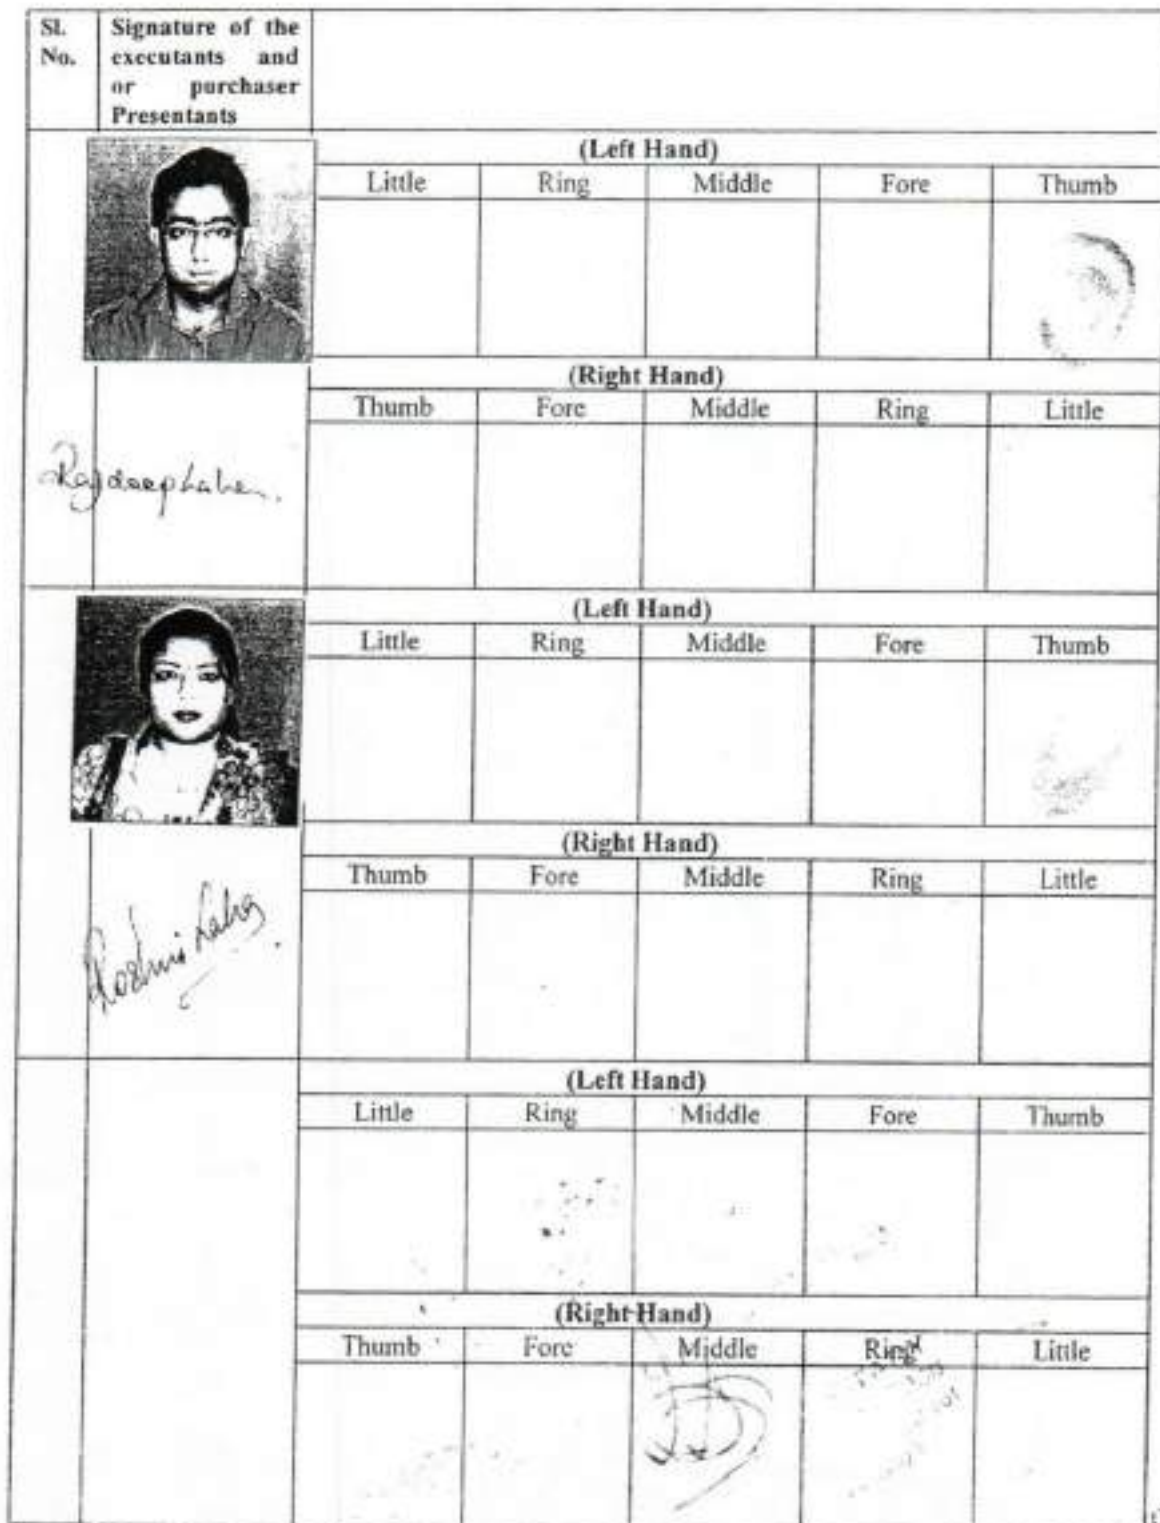 Sl. No.
Signature of the executants and or purchaser Presentants
(Left Hand)
Little Ring Middle Fore Thumb
(Right Hand)
Thumb Fore Middle Ring Little
Rajdeep Laha.
(Left Hand)
Little Ring Middle Fore Thumb
(Right Hand)
Thumb Fore Middle Ring Little
Roshmi Laha
(Left Hand)
Little Ring Middle Fore Thumb
(Right Hand)
Thumb Fore Middle Ring Little